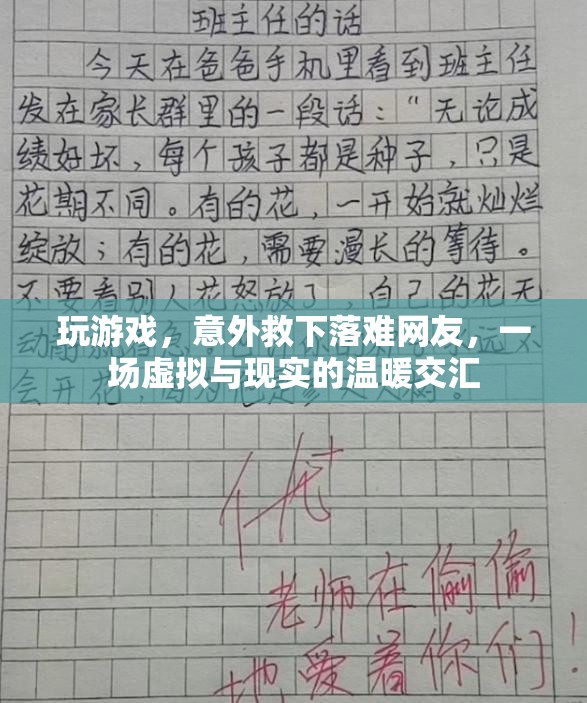 班主任的话
今天在爸爸手机里看到班主任
发在家长群里的一段话："无论成
绩好坏，每个孩子都是种子，只是
花期不同。有的花，一开始就灿烂
绽放；有的花，需要漫长的等待。
不要看别人花怒放了，自己的花无
玩游戏，意外救下落难网友，一
场虚拟与现实的温暖交汇
动静就
会开花，
优+
老师在偷偷
地爱着你们！